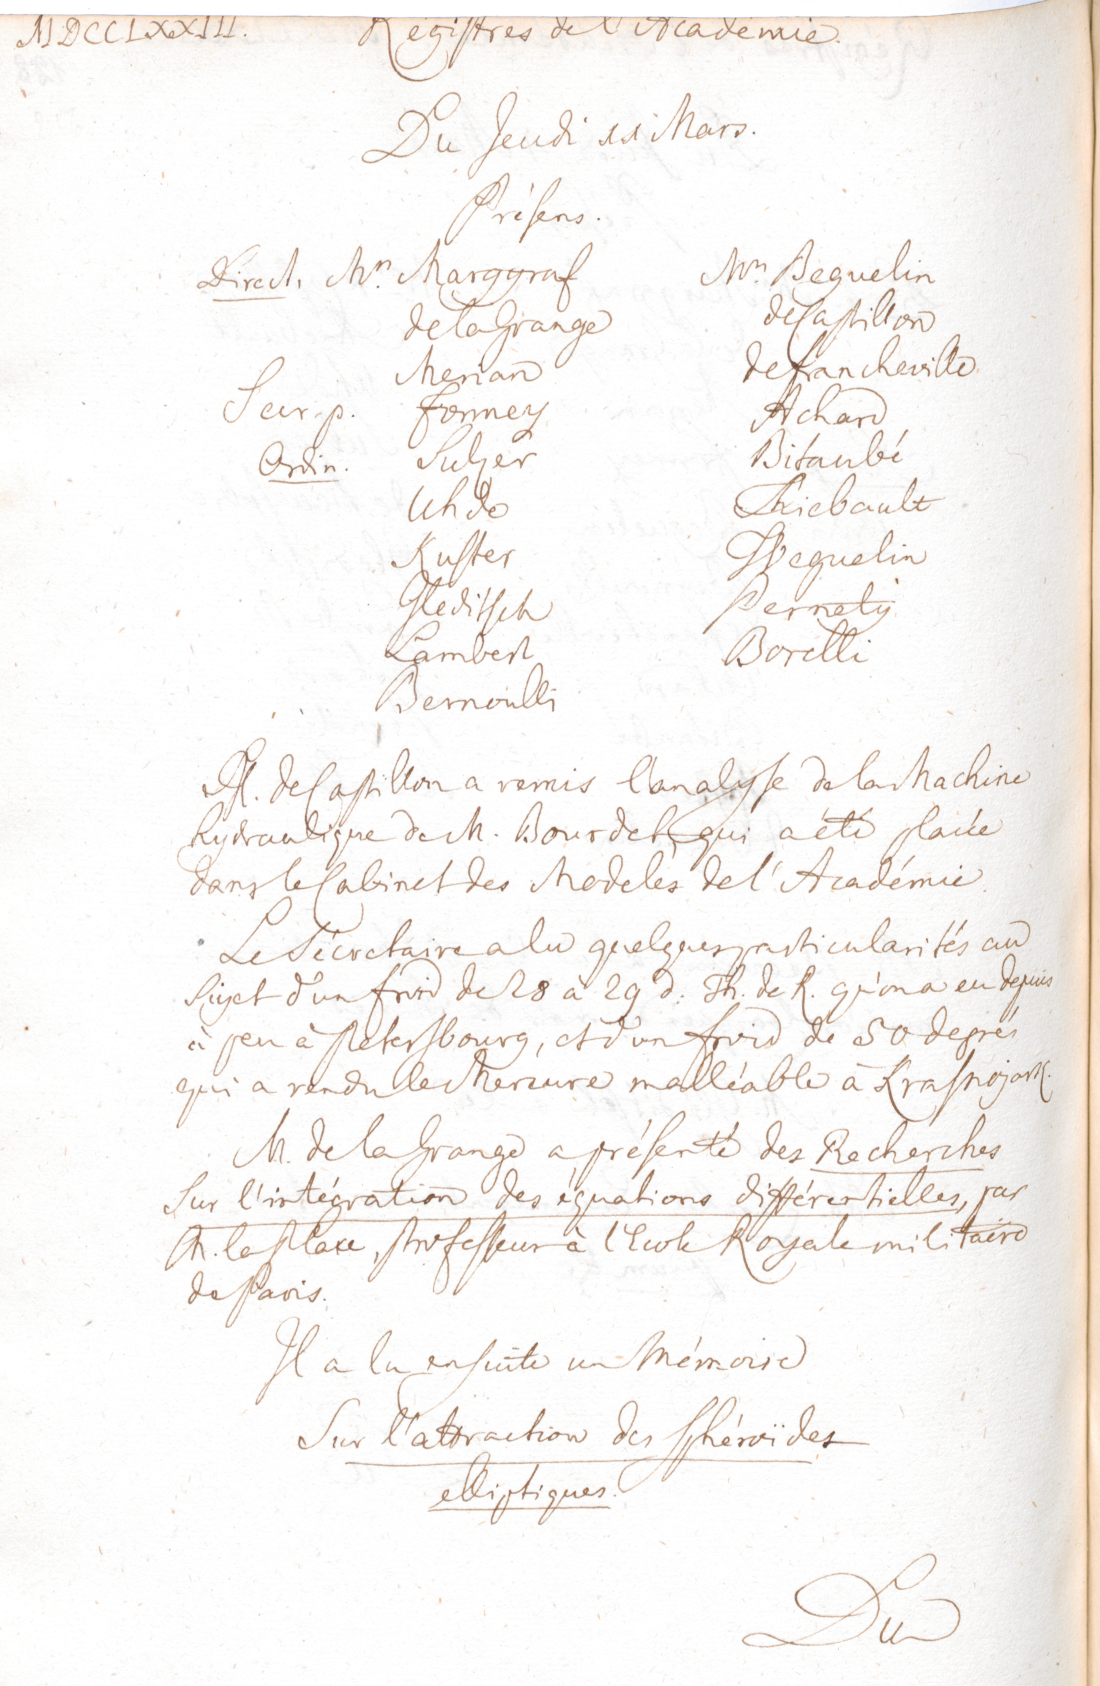 MDCCLXXIII. Registres de l'Académie.
Du Jeudi 11 Mars.
Présens.
Direct. Mrs. Marggraf
de la Grange
Merian
Secr. p. Formey
Ordin. Sulzer
Uhde
Kuster
Gleditsch
Lambert
Bernoulli
Mrs. Beguelin
de Castillon
de francheville
Achard
Bitaubé
Thiebault
Weguelin
Pernety
Borelli
M. de Castillon a remis l'analyse de la Machine
hydraulique de M. Bourdet, qui a été placée
dans le Cabinet des Modeles de l'Académie.
Le Sécretaire a lu quelques particularités au
sujet d'un froid de 28 à 29 d. Th. de R. qu'on a eu depuis
à peu à Petersbourg, et d'un froid de 50 degrés
qui a rendu le Mercure malléable à Krasnojark.
M. de la Grange a présenté des Recherches
sur l'intégration des équations différentielles, par
M. la Place, Professeur à l'Ecole Royale militaire
de Paris.
Il a lu ensuite un Mémoire
Sur l'attraction des Sphéroïdes
elliptiques.
Du